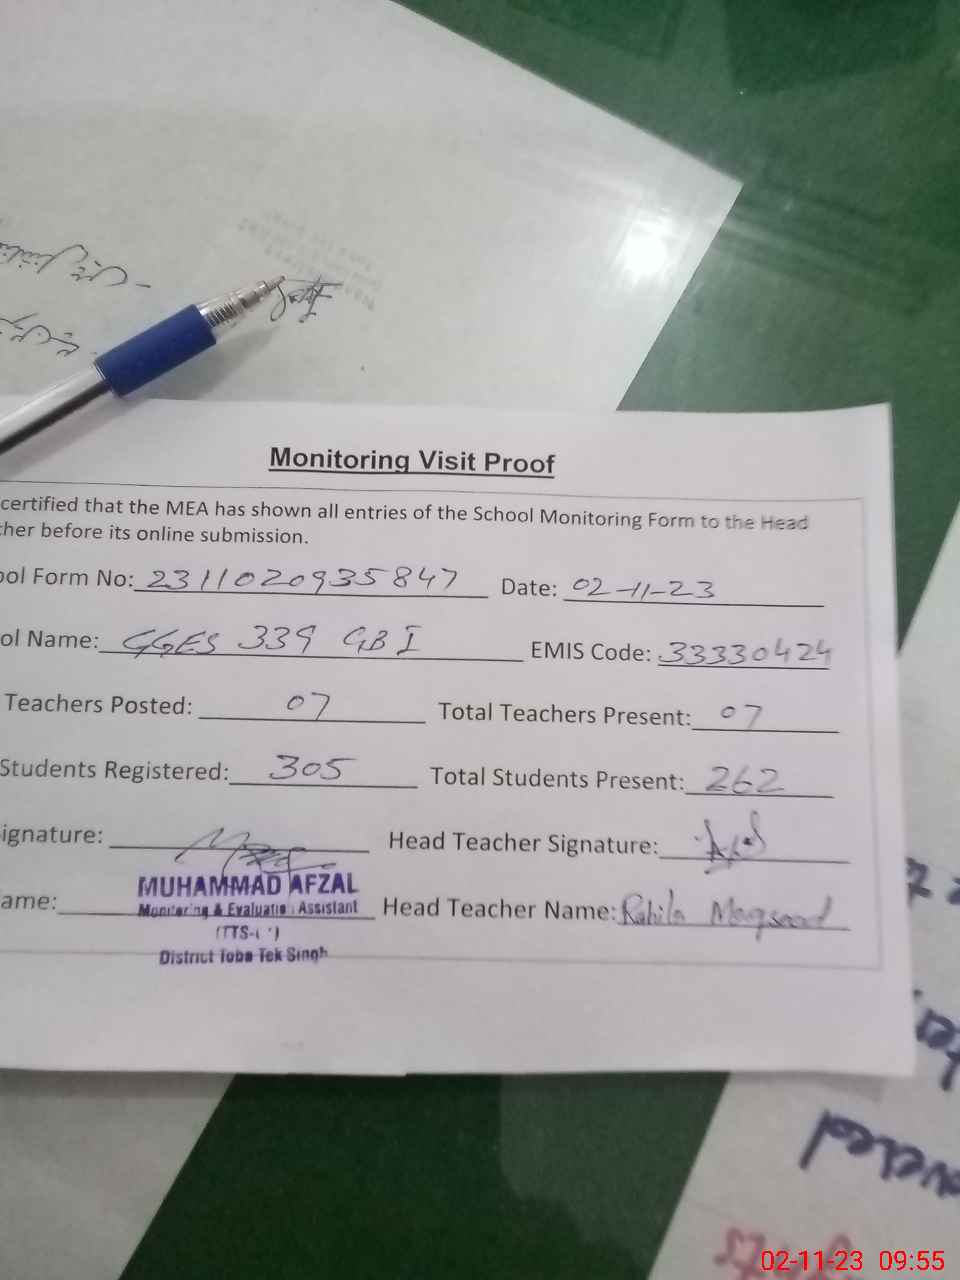 Monitoring Visit Proof
certified that the MEA has shown all entries of the School Monitoring Form to the Head
cher before its online submission.
ool Form No: 2311020935847 Date: 02-11-23
ol Name: GGES 339 GB I EMIS Code: 33330424
Teachers Posted: 07 Total Teachers Present: 07
Students Registered: 305 Total Students Present: 262
ignature: Head Teacher Signature:
ame: Head Teacher Name: Rahila Maqsood
MUHAMMAD AFZAL
Monitoring & Evaluation Assistant
District Toba Tek Singh
02-11-23 09:55